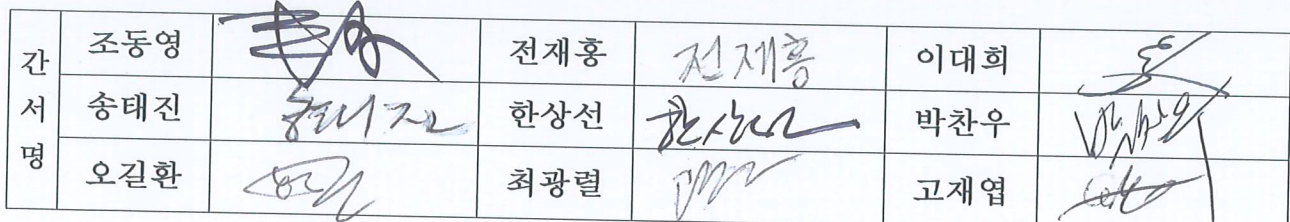 간서명
조동영 전재홍 전재홍 이대희
송태진 송태진 한상선 한상선 박찬우 박찬우
오길환 최광렬 고재엽